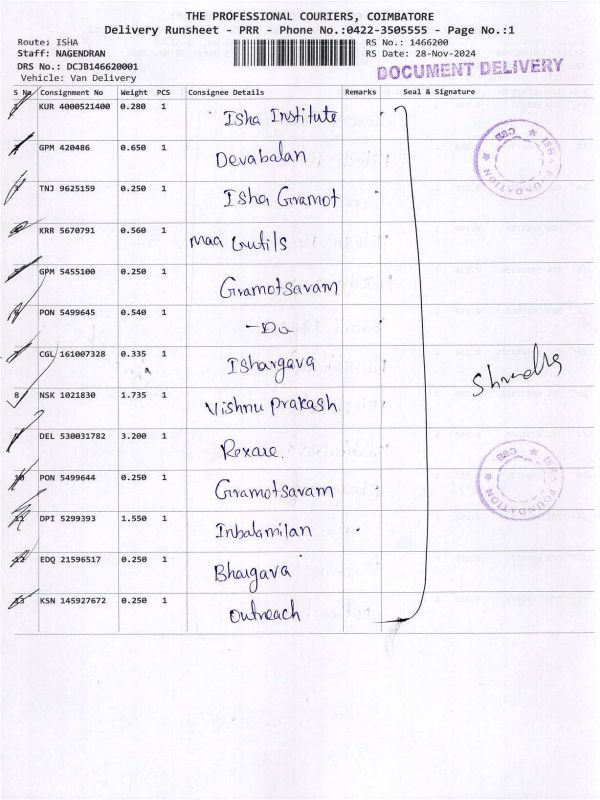 THE PROFESSIONAL COURIERS, COIMBATORE
Delivery Runsheet - PRR - Phone No.:0422-3505555 - Page No.:1
Route: ISHA RS No.: 1466200
Staff: NAGENDRAN RS Date: 28-Nov-2024
DRS No.: DCJB146620001 DOCUMENT DELIVERY
Vehicle: Van Delivery
S No Consignment No Weight PCS Consignee Details Remarks Seal & Signature
1 KUR 4000521400 0.280 1 Isha Institute
GPM 420486 0.650 1 Devabalan
TNJ 9625159 0.250 1 Isha Gramot
KRR 5670791 0.560 1 Maa
GPM 5455100 0.250 1 Gramotsavam
PON 5499645 0.540 1 -Do
CGL 161007328 0.335 1 Ishargava
8 NSK 1021830 1.735 1 Vishnu Prakash
DEL 530031782 3.200 1
10 PON 5499644 0.250 1 Gramotsavam
11 DPI 5299393 1.550 1 Inbalamilan
12 EDQ 21596517 0.250 1 Bhargava
13 KSN 145927672 0.250 1 Outreach
ISHA FOUNDATION CBS
ISHA FOUNDATION CBS